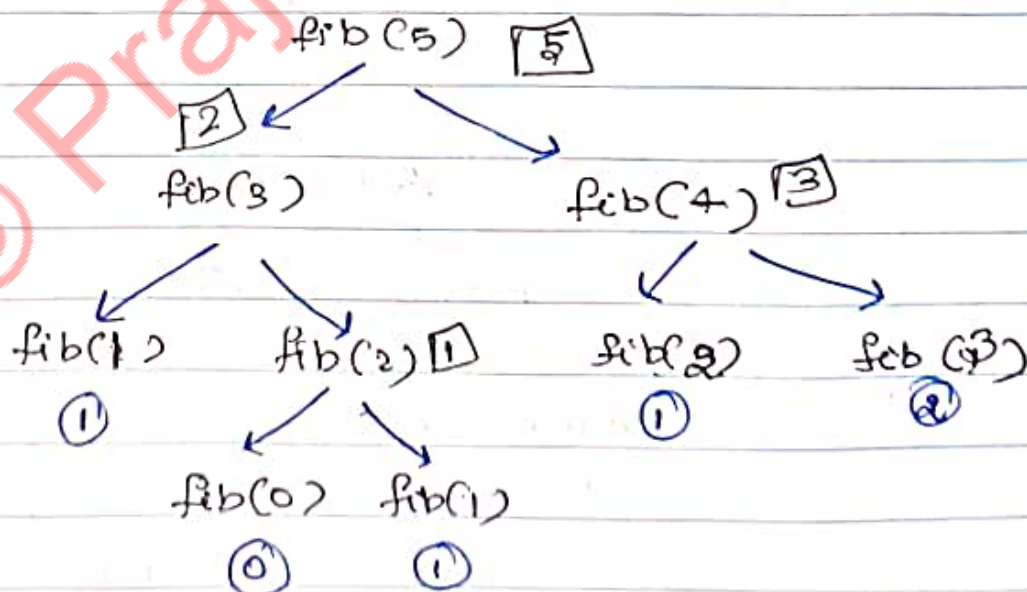 © Praj
fib(5) 5
2
fib(3) fib(4) 3
fib(1) fib(2) 1 fib(2) fib(3)
1 1 2
fib(0) fib(1)
0 1